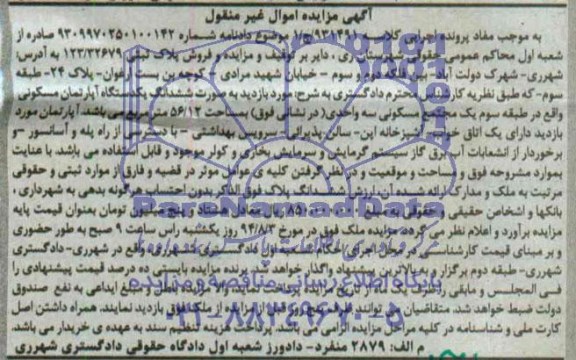 آگهی مزایده اموال غیر منقول
به موجب مفاد پرونده اجرایی کلاسه ۹۳۱۴۹۱/ج/۱ موضوع دادنامه شماره ۹۳۰۹۹۷۰۲۵۰۱۰۰۱۴۲ صادره از
شعبه اول محاکم عمومی حقوقی شهرستان ری، دایر بر توقیف و مزایده و فروش پلاک ثبتی ۱۲۳/۳۲۶۷۹ به آدرس:
شهرری- شهرک دولت آباد- بین فلکه دوم و سوم - خیابان شهید مرادی - کوچه بن بست ارغوان- پلاک ۲۴- طبقه
سوم- که طبق نظریه کارشناس محترم دادگستری به شرح: مورد بازدید به صورت ششدانگ یکدستگاه آپارتمان مسکونی
واقع در طبقه سوم یک مجتمع مسکونی سه واحدی( در نشانی فوق) بمساحت ۵۶/۱۲ متر مربع می باشد. آپارتمان مورد
بازدید دارای یک اتاق خواب- آشپزخانه اپن- سالن پذیرائی- سرویس بهداشتی - با دسترسی از راه پله و آسانسور - و
برخوردار از انشعابات آب برق گاز سیستم گرمایش و سرمایش بخاری و کولر موجود و قابل استفاده می باشد. با عنایت
بموارد مشروحه فوق و مساحت و موقعیت و در نظر گرفتن کلیه ی عوامل موثر در قضیه و فارق از موارد ثبتی و حقوقی
مرتبت به ملک و مدارک ارائه شده آن، ارزش ششدانگ پلاک فوق الذکر بدون احتساب هرگونه بدهی به شهرداری،
بانکها و اشخاص حقیقی و حقوقی به مبلغ ۸۵۰/۰۰۰/۰۰۰ ریال معادل هشتاد و پنج میلیون تومان بعنوان قیمت پایه
مزایده برآورد و اعلام نظر می گردد. مزایده ملک فوق در مورخ ۹۴/۸/۳ روز یکشنبه راس ساعت ۹ صبح به طور حضوری
و بر مبنای قیمت کارشناسی در محل اجرای احکام شعبه اول دادگستری شهرری، واقع در شهرری- دادگستری
شهرری- طبقه دوم برگزار و به بالاترین پیشنهاد واگذار خواهد شد. برنده مزایده بایستی ده درصد قیمت پیشنهادی را
فی المجلس و مابقی را ظرف از تاریخ مزایده پرداخت نماید و مبلغ ایداعی به نفع صندوق
دولت ضبط خواهد شد. متقاضیان می توانند قبل از مزایده از ملک فوق بازدید نمایند. همراه داشتن اصل
کارت ملی و شناسنامه در کلیه مراحل مزایده الزامی می باشد. پرداخت هزینه تنظیم سند به عهده ی خریدار می باشد.
م الف: ۲۸۷۹ منفرد- دادورز شعبه اول دادگاه حقوقی دادگستری شهرری
ParsNamadData
پایگاه اطلاع رسانی مناقصه و مزایده
۰۲۱-۸۸۳۴۹۶۷۰-۵